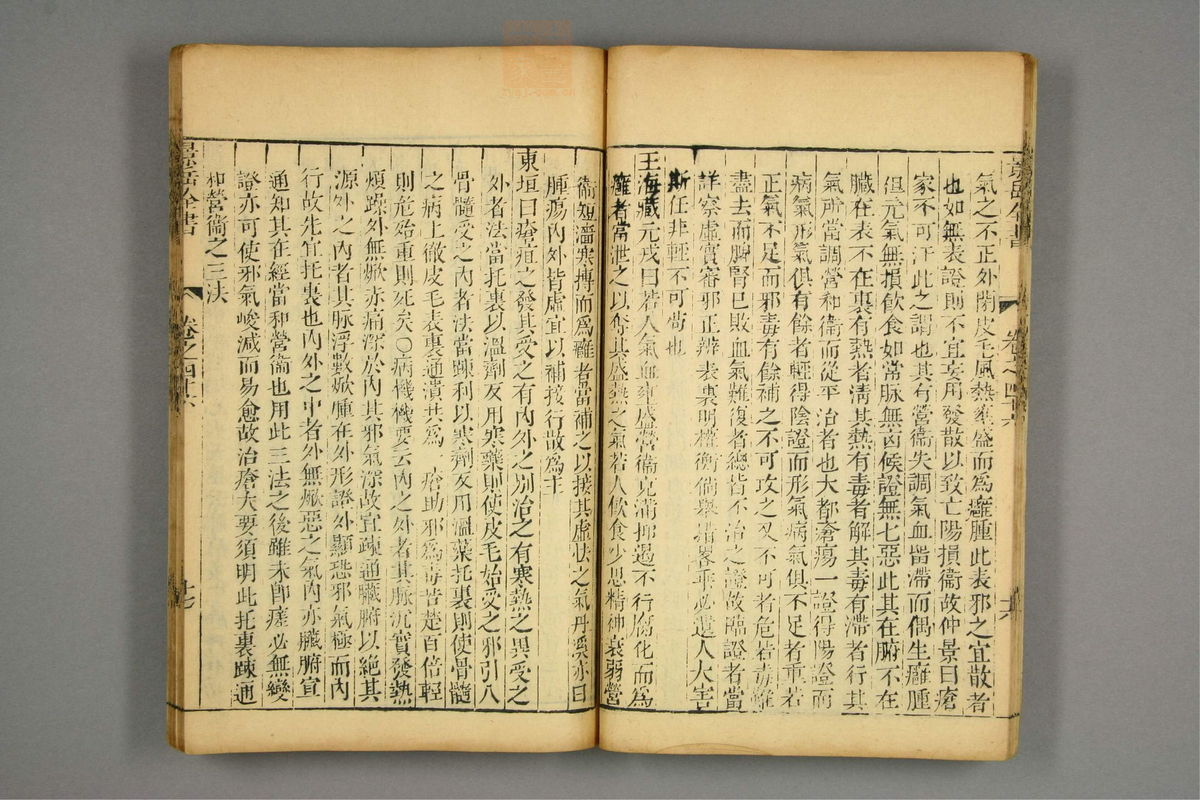 景岳全書
卷之四十六
十六
氣之不正外閉皮毛風熱壅盛而為癰腫此表邪之宜散者
也如無表證則不宜妄用發散以致亡陽損衛故仲景曰瘡
家不可汗此之謂也其有營衛失調氣血留滯而偶生癰腫
但元氣無損飲食如常脉無凶候證無七惡此其在腑不在
臟在表不在裏有熱者清其熱有毒者解其毒有滯者行其
氣所當調營和衛而從平治者也大都瘡瘍一證得陽證而
病氣形氣俱有餘者輕得陰證而形氣病氣俱不足者重若
正氣不足而邪毒有餘補之不可攻之又不可者危若毒雖
盡去而脾腎已敗血氣難復者總皆不治之證故臨證者當
詳察虛實審邪正辨表裏明權衡倘舉措畧乖必遺人大害
斯任非輕不可苟也
王海藏元戎曰若人氣血壅盛營衛充滿抑遏不行腐化而為
癰者當泄之以奪其盛熱之氣若人飲食少思精神衰弱營
衛短濇寒搏而為癰者當補之以接其虛怯之氣丹溪亦曰
腫瘍內外皆虛宜以補接行散為主
東垣曰瘡疽之發其受之有內外之別治之有寒熱之異受之
外者法當托裏以溫劑反用寒藥則使皮毛始受之邪引入
骨髓受之內者法當踈利以寒劑反用溫藥托裏則使骨髓
之病上徹皮毛表裏通潰共為一瘡助邪為毒苦楚百倍輕
則危殆重則死矣〇病機機要云內之外者其脉沉實發熱
煩躁外無焮赤痛深於內其邪氣深故宜疎通臟腑以絕其
源外之內者其脉浮數焮腫在外形證外顯恐邪氣極而內
行故先宜托裏也內外之中者外無焮惡之氣內亦臟腑宣
通知其在經當和營衛也用此三法之後雖未即瘥必無變
證亦可使邪氣峻減而易愈故治瘡大要須明此托裏踈通
和營衛之三法
景岳全書
卷之四十六
十七